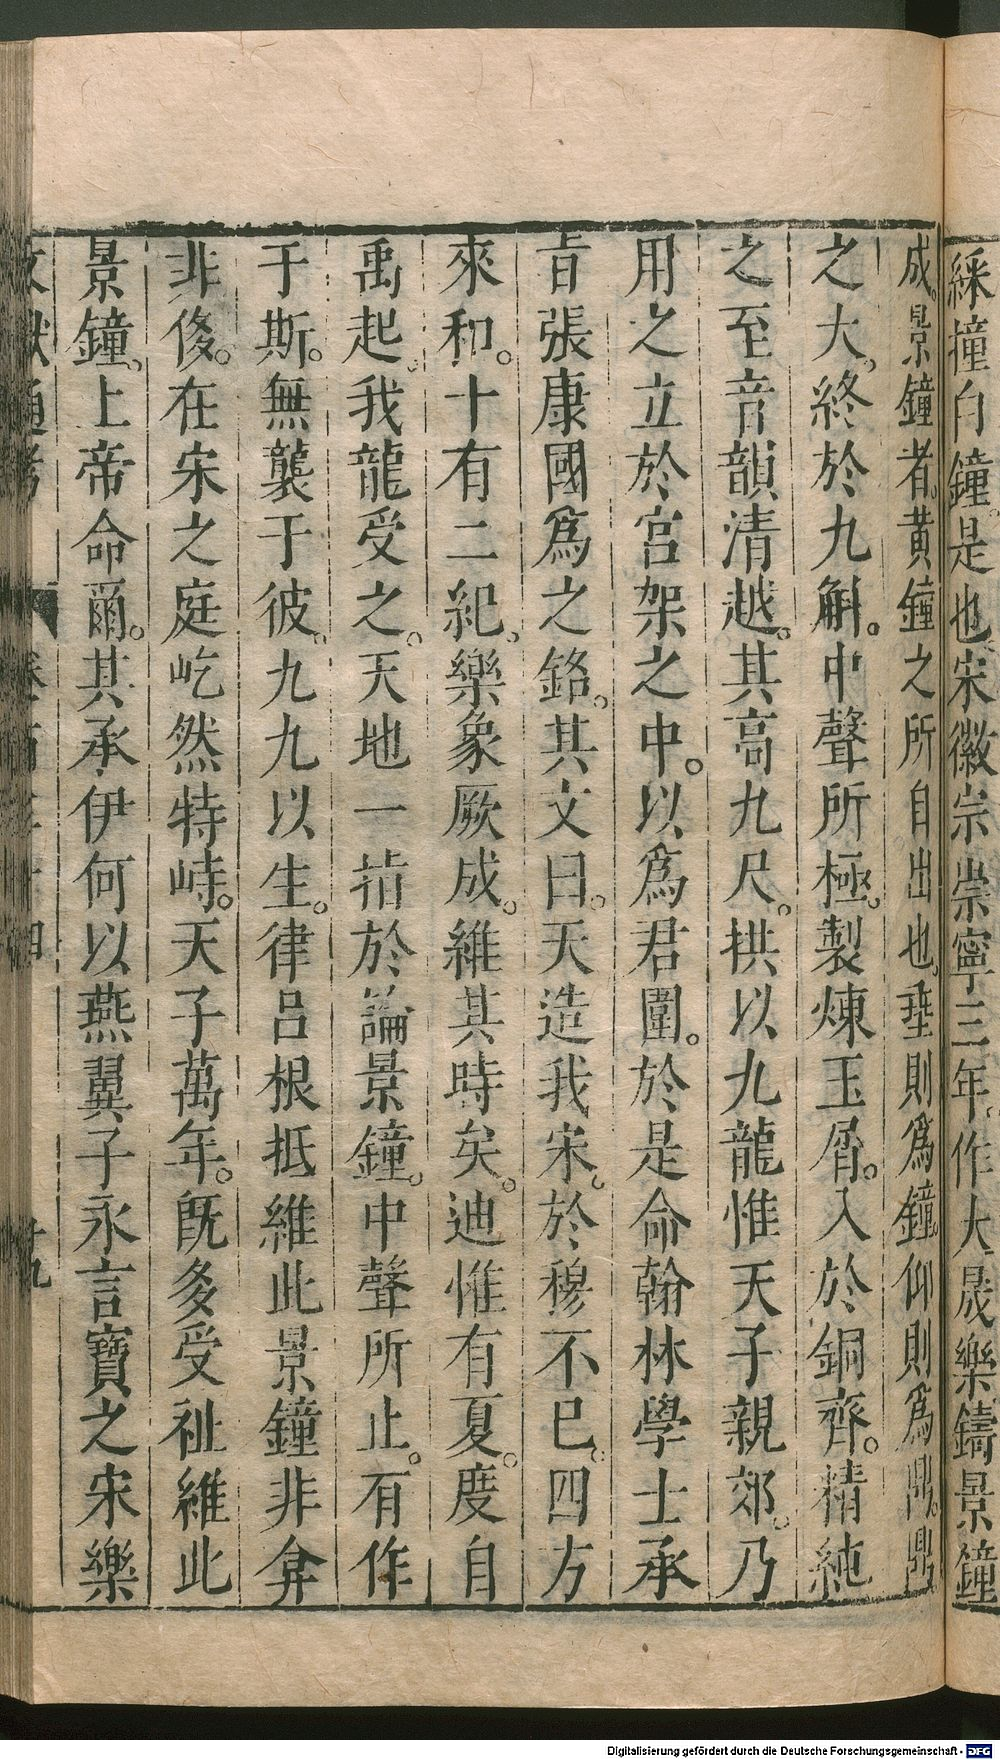 綵撞白鐘是也宋徽宗崇寧三年作大晟樂鑄景鐘
成。景鐘者。黃鐘之所自出也。垂則爲鐘。仰則爲鼎。鼎
之大。終於九斛。中聲所極。製煉玉屑。入於銅齊。精純
之至音韻清越。其高九尺。拱以九龍惟天子親郊。乃
用之立於宮架之中。以爲君圍。於是命翰林學士承
旨張康國爲之銘。其文曰。天造我宋。於穆不巳。四方
來和。十有二紀。樂象厥成。維其時矣。迪惟有夏。度自
禹起。我龍受之。天地一指於論景鐘。中聲所止。有作
于斯。無襲于彼。九九以生。律呂根抵維此景鐘非弇
非侈。在宋之庭屹然特峙。天子萬年。旣多受祉維此
景鐘。上帝命爾。其承伊何以燕翼子永言寶之宋樂
文獻通考 卷百三十四 十九
Digitalisierung gefördert durch die Deutsche Forschungsgemeinschaft - DFG